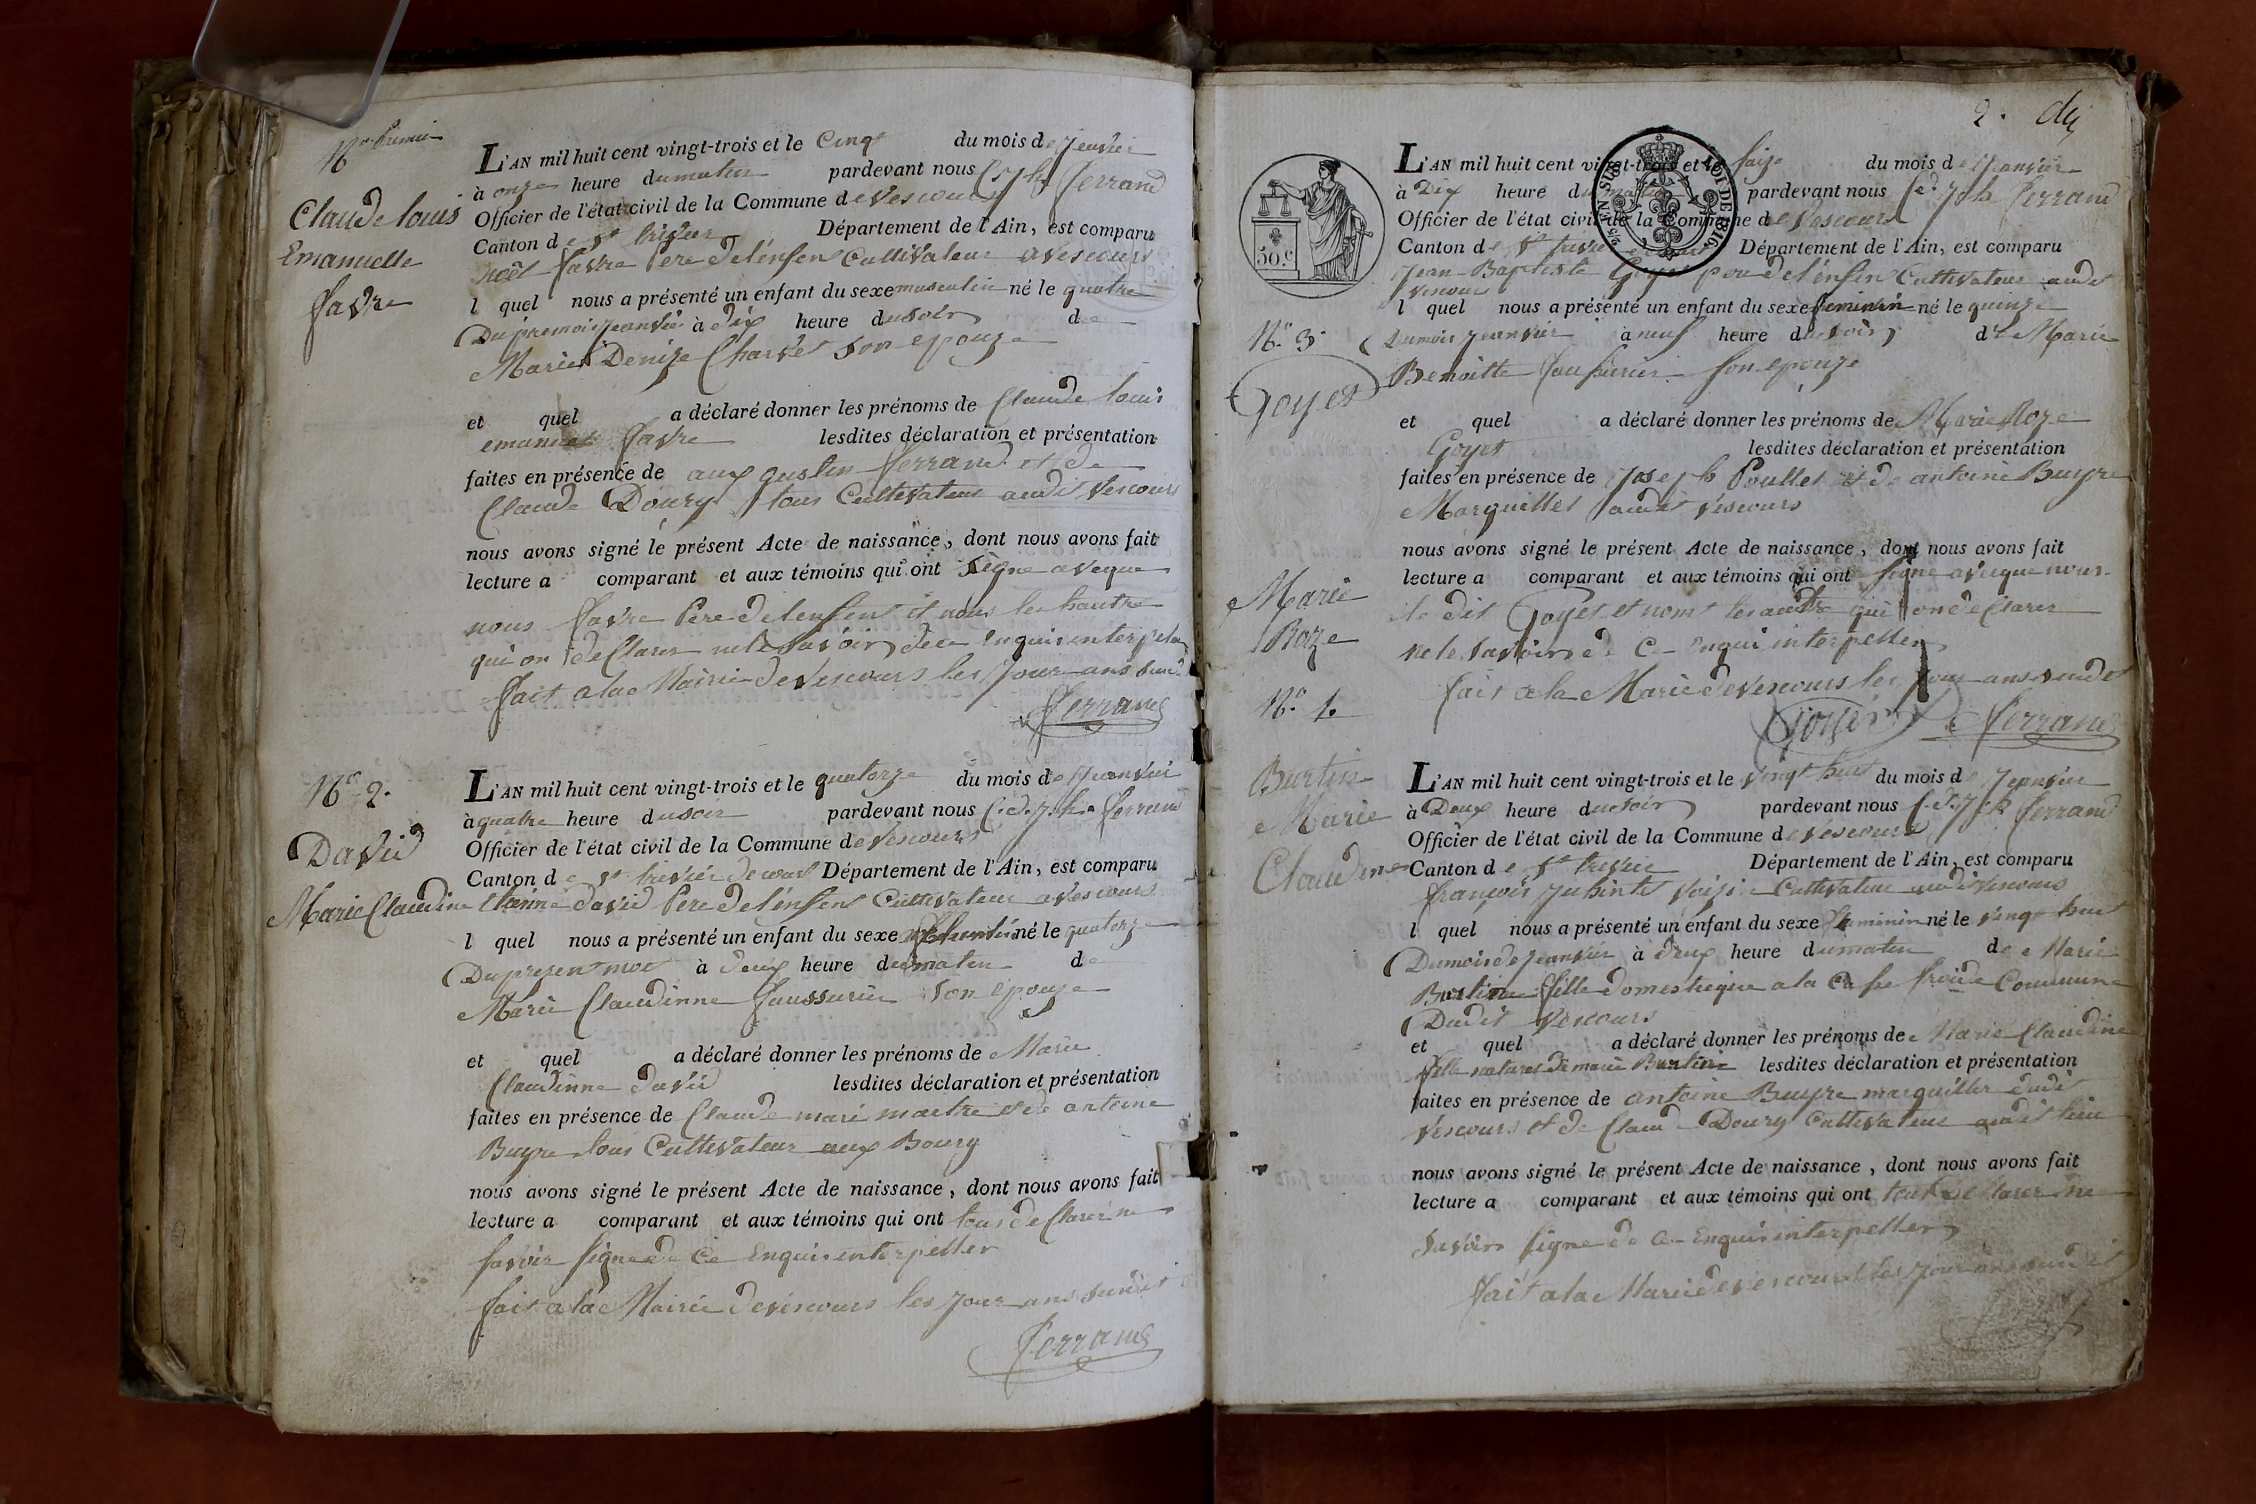 No premier
Claude louis
Emanuelle
favre
L'AN mil huit cent vingt-trois et le Cinq du mois de jenvier
à onze heure dumatin pardevant nous ferrand
Officier de l'état civil de la Commune de Vescours
Canton de St trivier Département de l'Ain, est comparu
noël favre Pere delenfen Cultivateur a Vescours
l quel nous a présenté un enfant du sexe masculin né le quatre
Du premois jeanvié à dix heure dusoir de
Marie Denize Charvet son epouze
et quel a déclaré donner les prénoms de Claude louis
emanuel favre lesdites déclaration et présentation
faites en présence de aux gustin ferrand et de
Claude Doury tous Cultivateur audit Vescours
nous avons signé le présent Acte de naissance, dont nous avons fait
lecture a comparant et aux témoins qui ont signe aveque
nous favre Pere delenfen et nous les hautre
qui on de Clarer nele savoir dece enquis interpeller
fait a la Mairie deVescours les jour ans sudit
ferrand
No 2.
David
Marie Claudine
L'AN mil huit cent vingt-trois et le quatorze du mois de jeanvier
à quatre heure dusoir pardevant nous ferrand
Officier de l'état civil de la Commune de Vescours
Canton de St trivier de court Département de l'Ain, est comparu
david Pere delénfen Cultivateur a Vescours
l quel nous a présenté un enfant du sexe né le quatorze
Du present moi à deux heure dumatin de
Marie Claudinne faussurier son epouze
et quel a déclaré donner les prénoms de Marie
Claudinne david lesdites déclaration et présentation
faites en présence de Claude marie maitre et de antoine
Buyre tous Cultivateur aux Bourg
nous avons signé le présent Acte de naissance, dont nous avons fait
lecture a comparant et aux témoins qui ont tous de Clarer ne
savoir signe de Ce Enquis interpeller
fait a la Mairie devescours les jour ans sundit
ferrand
2. dix
50.c
EN SUS
LOI DE 1816
L'AN mil huit cent vingt-trois et le saize du mois de jeanvier
à Dix heure du matin pardevant nous ferrand
Officier de l'état civil de la Commune de Vescours
Canton de St trivier Département de l'Ain, est comparu
jean-Baptiste Goyet delénfen Cultivateur audit
vescours
l quel nous a présenté un enfant du sexe feminin né le quinze
No. 3.
Dumois jeanvier à neuf heure dusoir de Marie
Benoitte faussurier son epouze
Goyet
et quel a déclaré donner les prénoms de Marie Roze
Goyet lesdites déclaration et présentation
faites en présence de joseph Poullet et de antoine Buyre
Marguillet audit vescours
nous avons signé le présent Acte de naissance, dont nous avons fait
lecture a comparant et aux témoins qui ont signe aveque nous
Marie
Roze
le dit Goyet et nont les autre qui on de Clarer
nele savoir de Ce enqui interpeller
fait a la Marie devescours les jour ans sundit
Goyet ferrand
Burtin
Marie
Claudine
L'AN mil huit cent vingt-trois et le vingt huit du mois de jeanvier
à Deux heure dusoir pardevant nous ferrand
Officier de l'état civil de la Commune de Vescours
Canton de St trivier Département de l'Ain, est comparu
françois Cultivateur audit vescours
l quel nous a présenté un enfant du sexe feminin né le vingt huit
Dumois de jeanvier à deux heure dumatin de Marie
Burtin fille domestique a la froide Commune
Dudit Vescours
et quel a déclaré donner les prénoms de Marie Claudine
fille naturel de marie Burtin lesdites déclaration et présentation
faites en présence de antoine Buyre marguiller dudit
vescours et de Claud Doury Cultivateur audit lieu
nous avons signé le présent Acte de naissance, dont nous avons fait
lecture a comparant et aux témoins qui ont tout de Clarer ne
savoir signe de Ce Enquis interpeller
fait a la Marie devescours les jour ans sundit